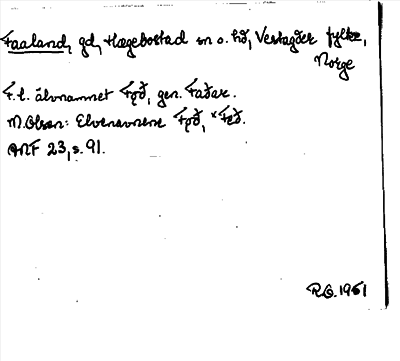 Faaland, gd, Hægebostad sn o. hd, Vestagder fylke,
Norge
F. t. älvnamnet Fǫð, gen. Faðar.
M. Olsen: Elvenavnene Fǫð, *Feð.
ANF 23, s. 91.
R.O. 1951